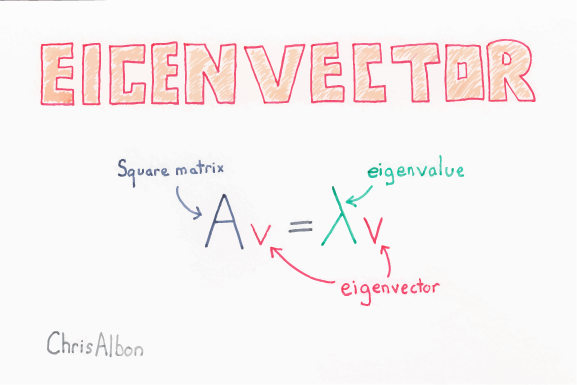 EIGENVECTOR
Square matrix
eigenvalue
Av = λv
eigenvector
ChrisAlbon